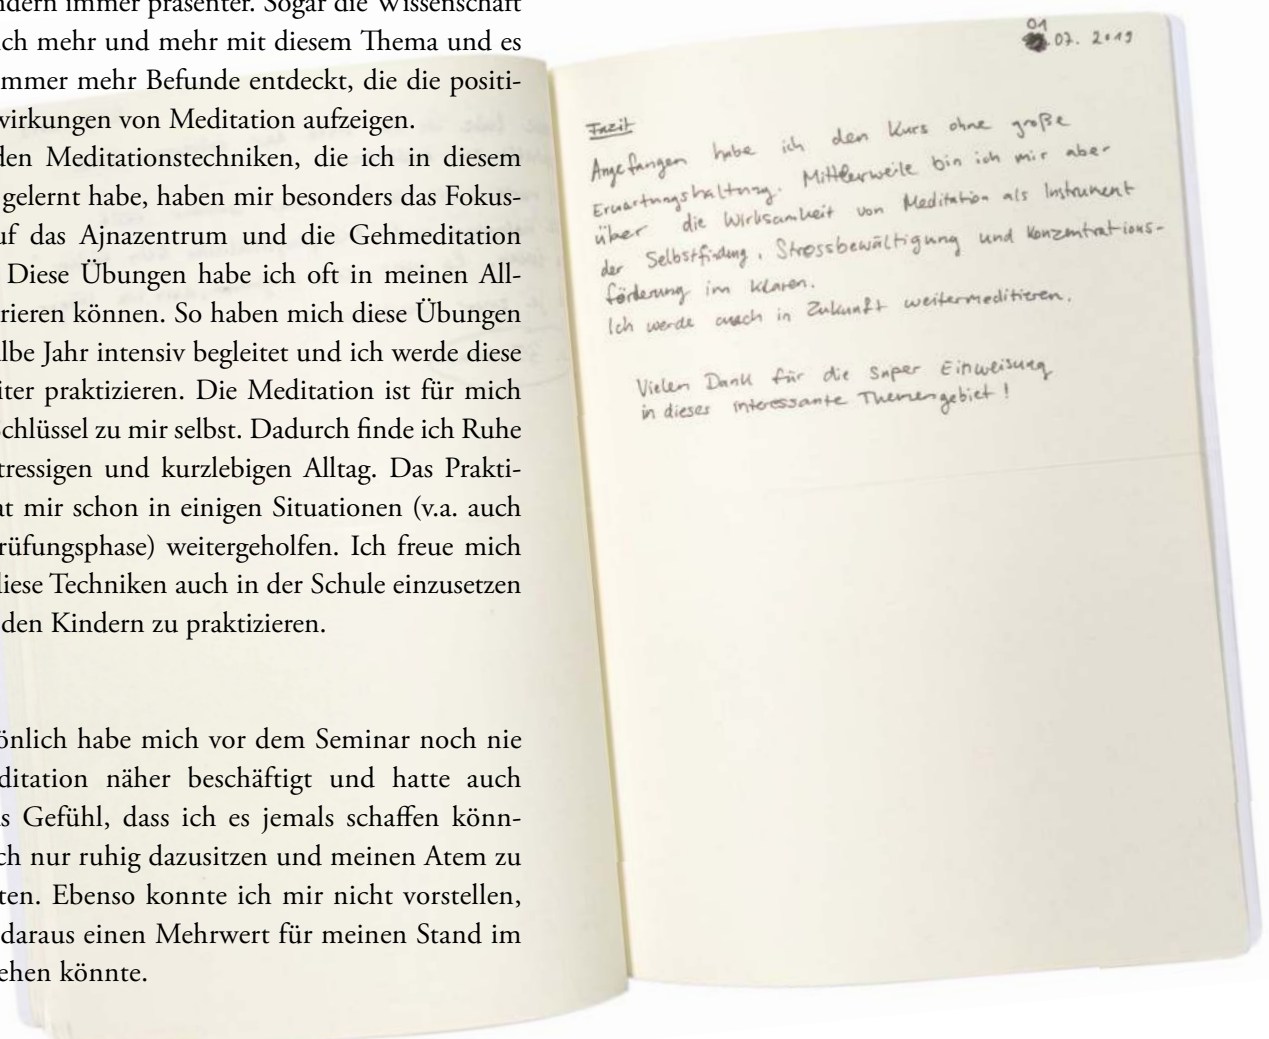 ndern immer präsenter. Sogar die Wissenschaft
ch mehr und mehr mit diesem Thema und es
mmer mehr Befunde entdeckt, die die positi-
wirkungen von Meditation aufzeigen.
den Meditationstechniken, die ich in diesem
gelernt habe, haben mir besonders das Fokus-
uf das Ajnazentrum und die Gehmeditation
Diese Übungen habe ich oft in meinen All-
rieren können. So haben mich diese Übungen
albe Jahr intensiv begleitet und ich werde diese
iter praktizieren. Die Meditation ist für mich
chlüssel zu mir selbst. Dadurch finde ich Ruhe
tressigen und kurzlebigen Alltag. Das Prakti-
at mir schon in einigen Situationen (v.a. auch
rüfungsphase) weitergeholfen. Ich freue mich
diese Techniken auch in der Schule einzusetzen
den Kindern zu praktizieren.
önlich habe mich vor dem Seminar noch nie
ditation näher beschäftigt und hatte auch
s Gefühl, dass ich es jemals schaffen könn-
ch nur ruhig dazusitzen und meinen Atem zu
ten. Ebenso konnte ich mir nicht vorstellen,
daraus einen Mehrwert für meinen Stand im
ehen könnte.
01
07. 2019
Fazit
Angefangen habe ich den Kurs ohne große
Erwartungshaltung. Mittlerweile bin ich mir aber
über die Wirksamkeit von Meditation als Instrument
der Selbstfindung, Stressbewältigung und Konzentrations-
förderung im Klaren.
Ich werde auch in Zukunft weitermeditieren.
Vielen Dank für die super Einweisung
in dieses interessante Themengebiet!